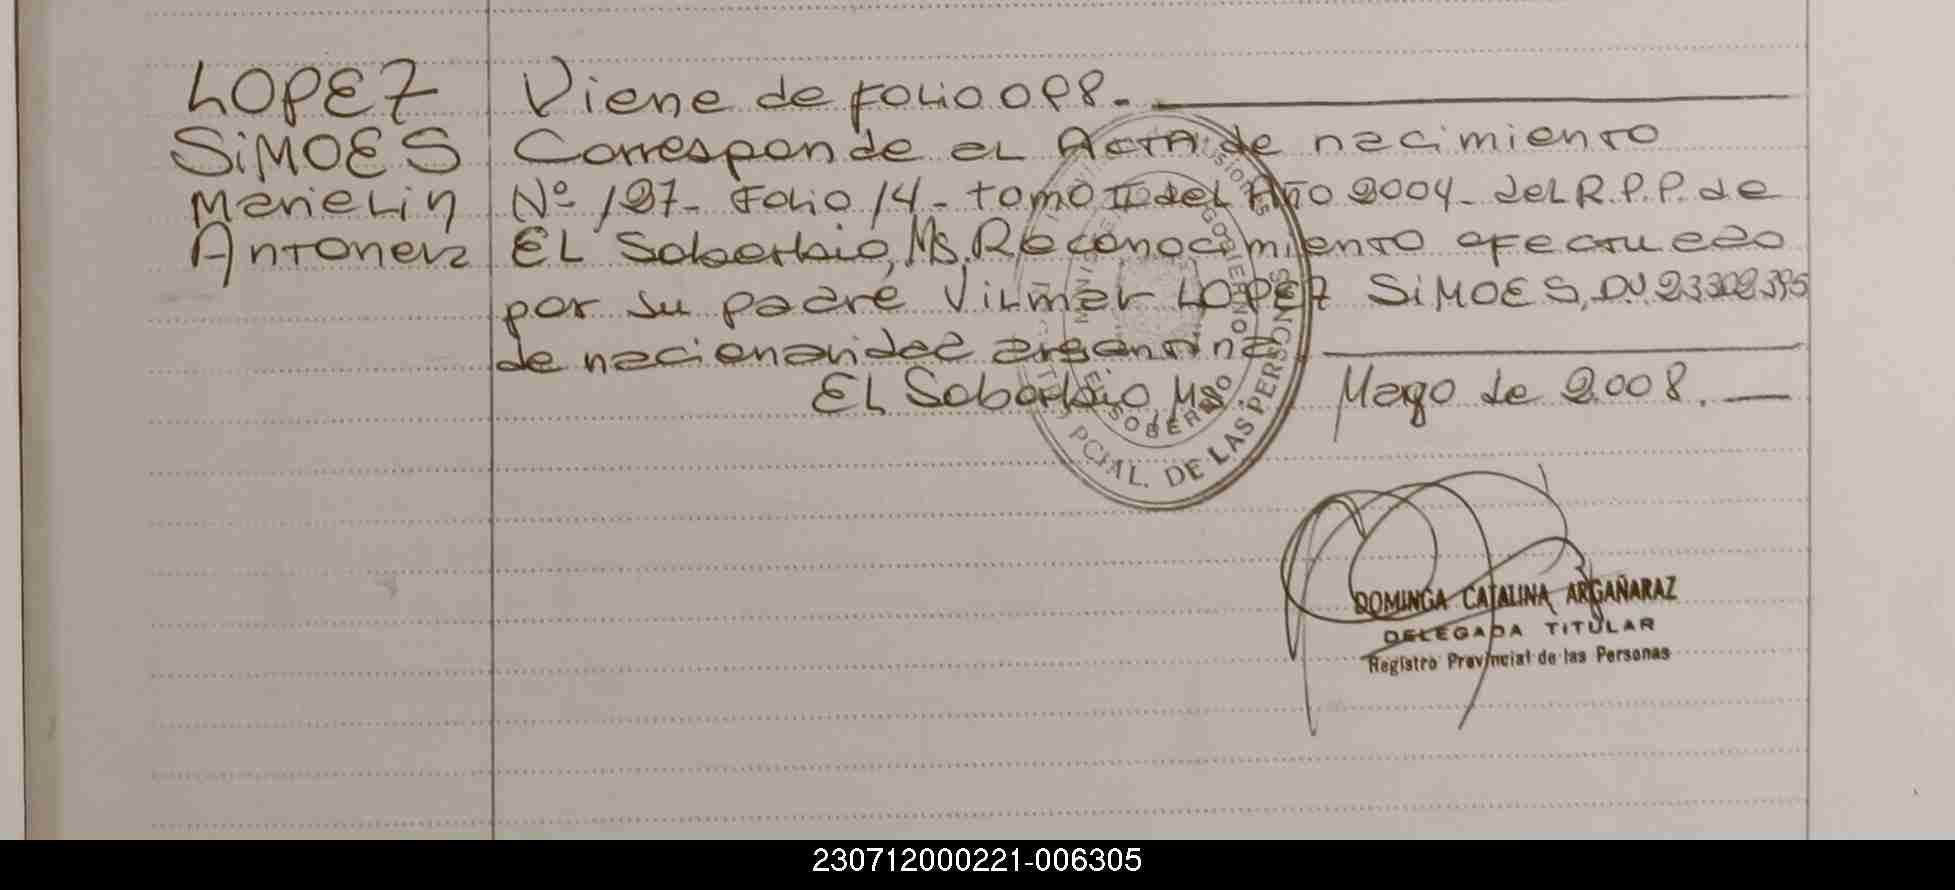 LOPEZ Viene de FOLIO 098.
SiMOES Corresponde al ActA de nacimiento
Marielin Nº 127- Folio 14- tomo II del Año 2004- del R.P.P. de
Antonella EL Soberbio, Ms. Reconocimiento efectuado
por su padre Vilmar LOPEZ SiMOES, D.U. 23.302.395
de nacionalidad argentina
EL Soberbio Ms. Mayo de 2.008.
PCIAL. DE LAS PERSONAS
EL SOBERBIO
DOMINGA CATALINA ARGAÑARAZ
DELEGADA TITULAR
Registro Provincial de las Personas
230712000221-006305